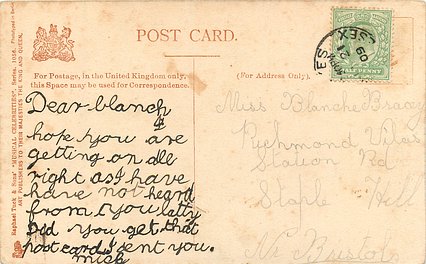 POST CARD.
For Postage, in the United Kingdom only,
this Space may be used for Correspondence.
(For Address Only).
Raphael Tuck & Sons' "MUSICAL CELEBRITIES"
ART PUBLISHERS TO THEIR MAJESTIES THE KING AND QUEEN.
HALF PENNY
SEX
21
09
ES
Dear blanch
hope you are
getting on all
right as I have
have not heard
from you latly
Did you get that
postcard I sent you.
Miss Blanche Bracey
Richmond Villas
Station Rd
Staple Hill
Nr Bristol